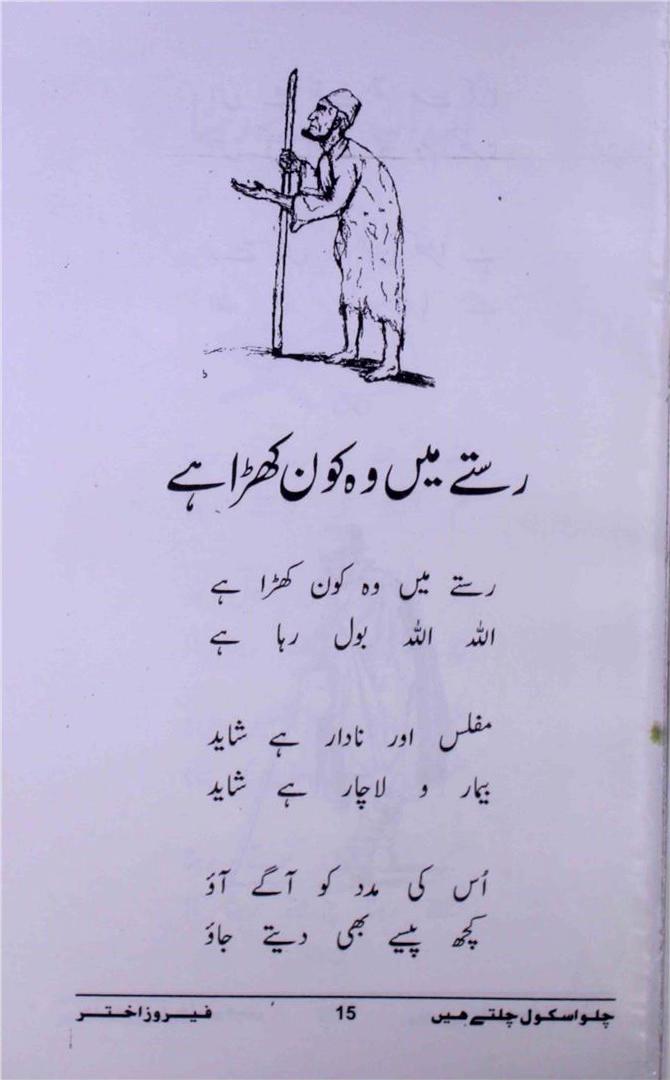 رستے میں وہ کون کھڑا ہے
رستے میں وہ کون کھڑا ہے
اللہ اللہ بول رہا ہے
مفلس اور نادار ہے شاید
بیمار و لاچار ہے شاید
اُس کی مدد کو آگے آؤ
کچھ پیسے بھی دیتے جاؤ
چلو اسکول چلتے ہیں 15 فیروز اختر